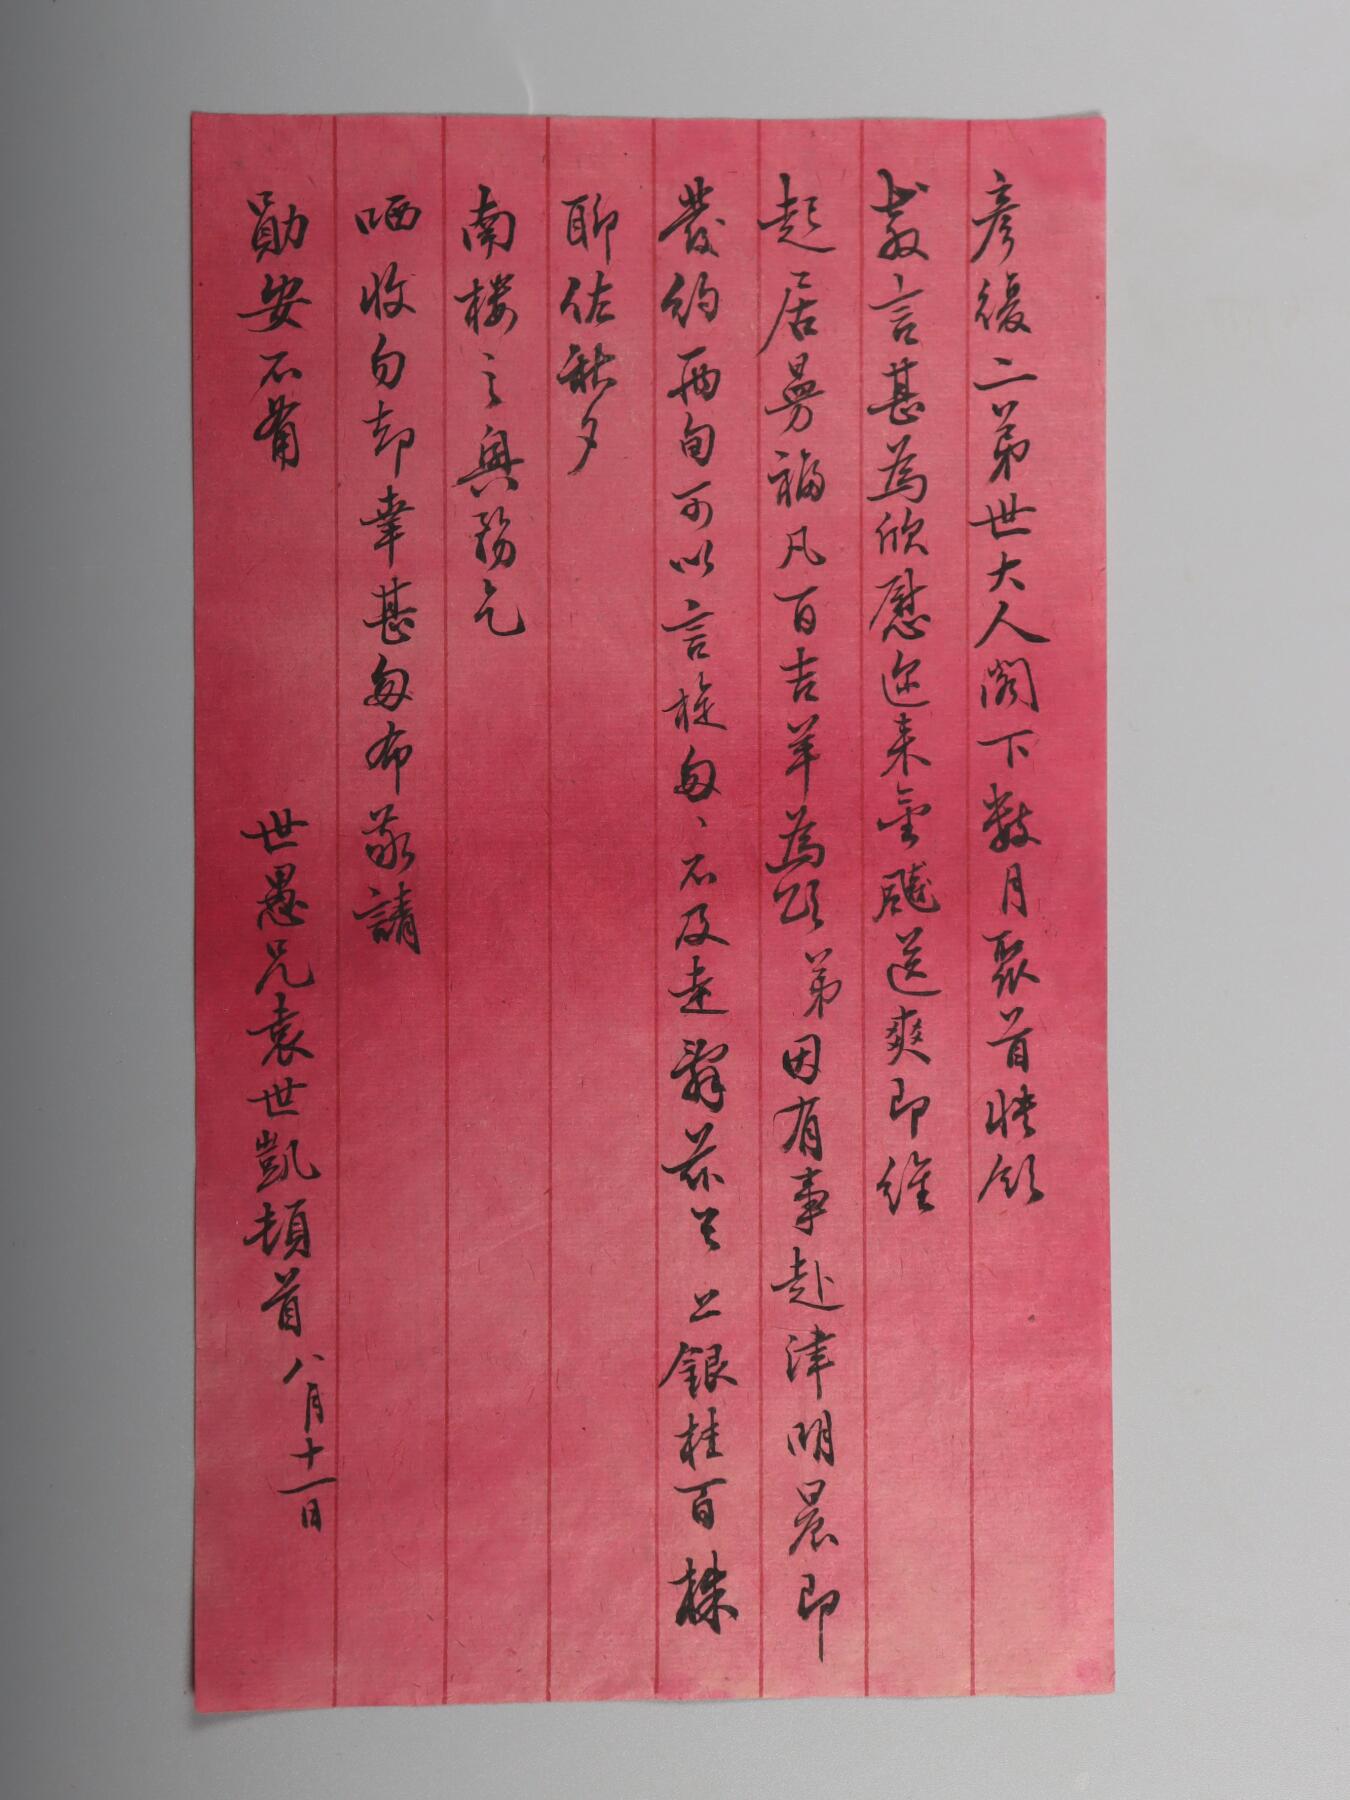 彥復二弟世大人閣下數月聚首快領
教言甚為欣慰邇來金飈送爽即維
起居曼福凡百吉羊為頌弟因有事赴津明晨即
發約兩旬可以言旋匆〻不及走辭茲呈上銀桂百株
聊佐秋夕
南樓之興務乞
哂收勿却幸甚匆布敬請
勛安不宵
世愚兄袁世凱頓首 八月十一日